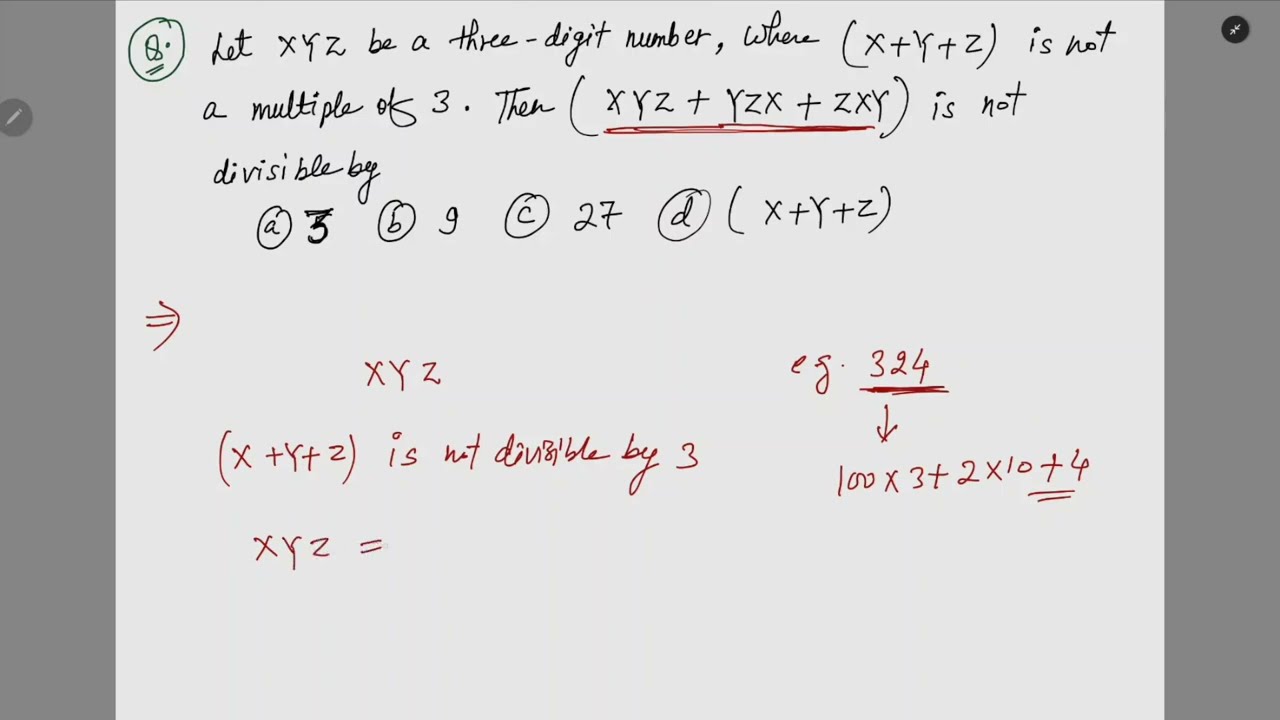 Q. Let XYZ be a three-digit number, where (X+Y+Z) is not
a multiple of 3. Then (XYZ + YZX + ZXY) is not
divisible by
(a) 3 (b) 9 (c) 27 (d) (X+Y+Z)
⇒
XYZ
e.g. 324
↓
(X+Y+Z) is not divisible by 3
100×3+2×10+4
XYZ =